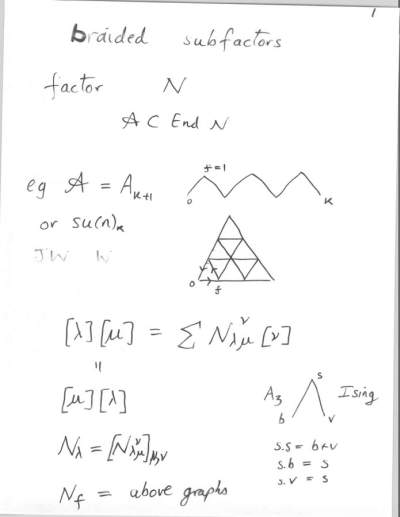 1
braided subfactors
factor N
A ⊂ End N
eg A = A_{k+1}
f=1
0
k
or su(n)_k
JW W
0
f
[λ][μ] = Σ N_{λμ}^ν [ν]
"
[μ][λ]
A_3
s
Ising
b
v
N_λ = [N_{λμ}^ν]_{μ,ν}
s.s = b+v
s.b = s
s.v = s
N_f = above graphs